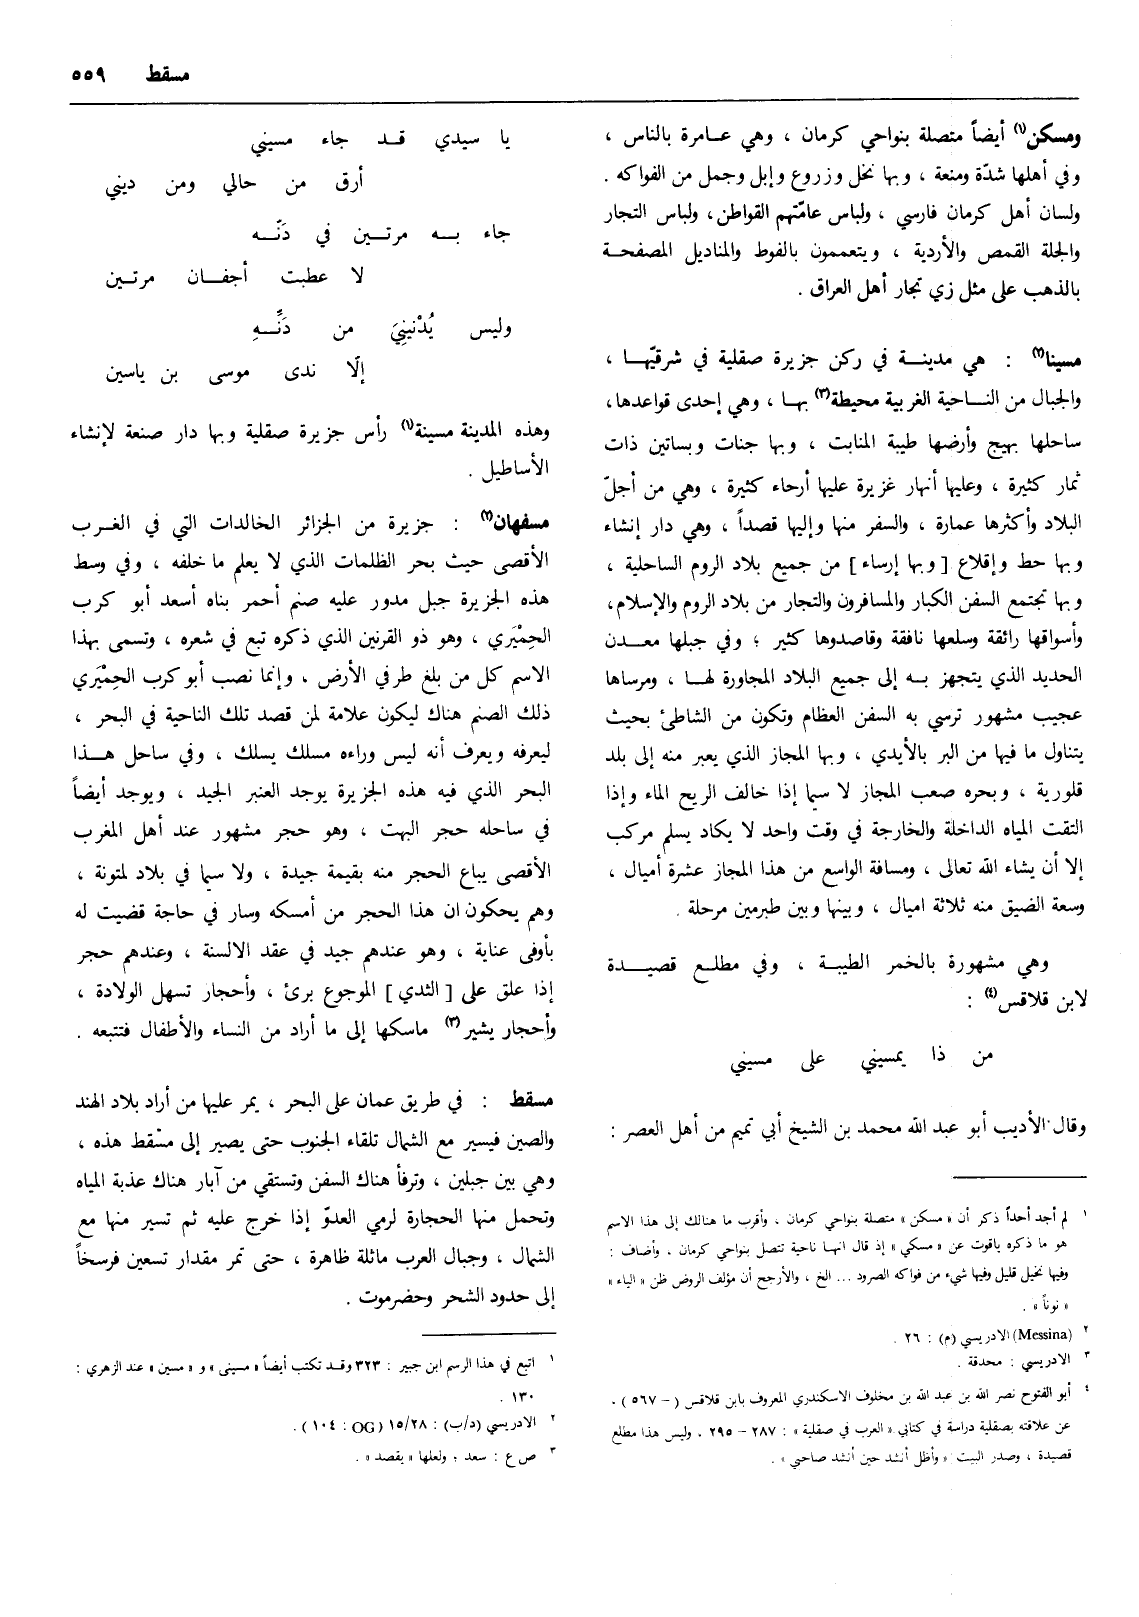 مسقط ٥٥٩
ومسكن(١) أيضاً متصلة بنواحي كرمان ، وهي عـامرة بالناس ،
وفي أهلها شدّة ومنعة ، وبها نخل وزروع وإبل وجمل من الفواكه .
ولسان أهل كرمان فارسي ، ولباس عامّتهم القواطن ، ولباس التجار
والجلة القمص والأردية ، ويتعممون بالفوط والمناديل المصفحـة
بالذهب على مثل زي تجار أهل العراق .
مسينا(٢) : هي مدينـة في ركن جزيرة صقلية في شرقيّهـا ،
والجبال من النـاحية الغربية محيطة(٣) بهـا ، وهي إحدى قواعدها،
ساحلها بهيج وأرضها طيبة المنابت ، وبها جنات وبساتين ذات
ثمار كثيرة ، وعليها أنهار غزيرة عليها أرحاء كثيرة ، وهي من أجلّ
البلاد وأكثرها عمارة ، والسفر منها وإليها قصداً ، وهي دار إنشاء
وبها حط وإقلاع [ وبها إرساء ] من جميع بلاد الروم الساحلية ،
وبها تجتمع السفن الكبار والمسافرون والتجار من بلاد الروم والإسلام،
وأسواقها رائقة وسلعها نافقة وقاصدوها كثير ؛ وفي جبلها معـدن
الحديد الذي يتجهز بـه إلى جميع البلاد المجاورة لهـا ، ومرساها
عجيب مشهور ترسي به السفن العظام وتكون من الشاطئ بحيث
يتناول ما فيها من البر بالأيدي ، وبها المجاز الذي يعبر منه إلى بلد
قلورية ، وبحره صعب المجاز لا سيما إذا خالف الريح الماء وإذا
التقت المياه الداخلة والخارجة في وقت واحد لا يكاد يسلم مركب
إلا أن يشاء الله تعالى ، ومسافة الواسع من هذا المجاز عشرة أميال ،
وسعة الضيق منه ثلاثة اميال ، وبينها وبين طبرمين مرحلة .
وهي مشهورة بالخمر الطيبة ، وفي مطلـع قصيـدة
لابن قلاقس(٤) :
من ذا يمسيني على مسيني
وقال الأديب أبو عبد الله محمد بن الشيخ أبي تميم من أهل العصر :
١ لم أجد أحداً ذكر أن « مسكن » متصلة بنواحي كرمان ، وأقرب ما هنالك إلى هذا الاسم
هو ما ذكره ياقوت عن « مسكي » إذ قال انهـا ناحية تتصل بنواحي كرمان ، وأضاف :
وفيها نخيل قليل وفيها شيء من فواكه الصرود ... الخ ، والأرجح أن مؤلف الروض ظن « الياء »
« نوناً » .
٢ (Messina) الادريسي (م) : ٢٦ .
٣ الادريسي : محدقة .
٤ أبو الفتوح نصر الله بن عبد الله بن مخلوف الاسكندري المعروف بابن قلاقس ( – ٥٦٧ ) .
عن علاقته بصقلية دراسة في كتابي « العرب في صقلية » : ٢٨٧ – ٢٩٥ ، وليس هذا مطلع
قصيدة ، وصدر البيت : « وأظل أنشد حين أنشد صاحبي » .
يا سيدي قـد جاء مسيني
أرق من حالي ومن ديني
جاء بـه مرتـين في دَنّـه
لا عطبت أجفـان مرتـين
وليس يُدْنيني من دَنِّـهِ
إلّا ندى موسى بن ياسين
وهذه المدينة مسينة(١) رأس جزيرة صقلية وبها دار صنعة لإنشاء
الأساطيل .
مسفهان(٢) : جزيرة من الجزائر الخالدات التي في الغـرب
الأقصى حيث بحر الظلمات الذي لا يعلم ما خلفه ، وفي وسط
هذه الجزيرة جبل مدور عليه صنم أحمر بناه أسعد أبو كرب
الحِمْيَري ، وهو ذو القرنين الذي ذكره تبع في شعره ، وتسمى بهذا
الاسم كل من بلغ طرفي الأرض ، وإنما نصب أبو كرب الحِمْيَري
ذلك الصنم هناك ليكون علامة لمن قصد تلك الناحية في البحر ،
ليعرفه ويعرف أنه ليس وراءه مسلك يسلك ، وفي ساحل هـذا
البحر الذي فيه هذه الجزيرة يوجد العنبر الجيد ، ويوجد أيضاً
في ساحله حجر البهت ، وهو حجر مشهور عند أهل المغرب
الأقصى يباع الحجر منه بقيمة جيدة ، ولا سيما في بلاد لمتونة ،
وهم يحكون ان هذا الحجر من أمسكه وسار في حاجة قضيت له
بأوفى عناية ، وهو عندهم جيد في عقد الالسنة ، وعندهم حجر
إذا علق على [ الثدي ] الموجوع برئ ، وأحجار تسهل الولادة ،
وأحجار يشير(٣) ماسكها إلى ما أراد من النساء والأطفال فتتبعه .
مسقط : في طريق عمان على البحر ، يمر عليها من أراد بلاد الهند
والصين فيسير مع الشمال تلقاء الجنوب حتى يصير إلى مسْقط هذه ،
وهي بين جبلين ، وترفأ هناك السفن وتستقي من آبار هناك عذبة المياه
وتحمل منها الحجارة لرمي العدوّ إذا خرج عليه ثم تسير منها مع
الشمال ، وجبال العرب ماثلة ظاهرة ، حتى تمر مقدار تسعين فرسخاً
إلى حدود الشحر وحضرموت .
١ اتبع في هذا الرسم ابن جبير : ٣٢٣ وقـد تكتب أيضاً « مسيني » و « مسين » عند الزهري :
١٣٠ .
٢ الادريسي (د/ب) : ١٥/٢٨ (OG : ١٠٤ ) .
٣ ص ع : سعد ؛ ولعلها « يقصد » .